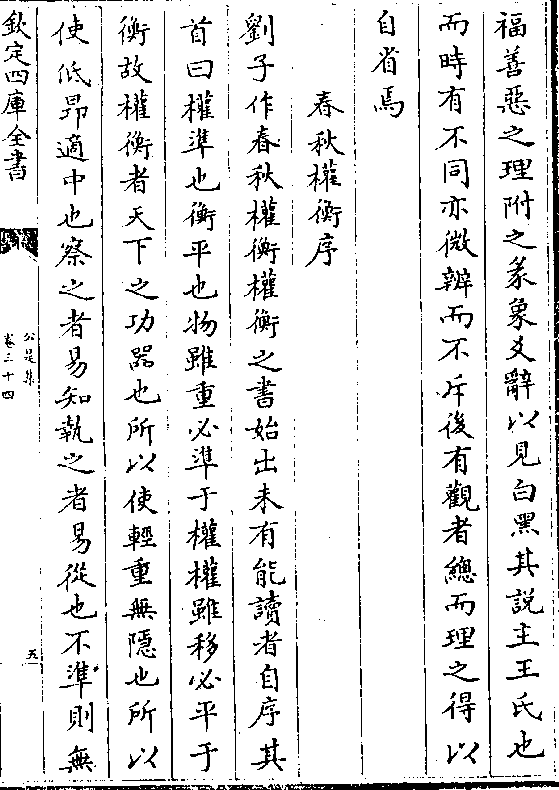 福善惡之理附之彖象爻辭以見白黑其説主王氏也
而時有不同亦微辨而不斥後有觀者總而理之得以
自省焉
春秋權衡序
劉子作春秋權衡權衡之書始出未有能讀者自序其
首曰權準也衡平也物雖重必準于權權雖移必平于
衡故權衡者天下之功器也所以使輕重無隱也所以
使低昻適中也察之者易知執之者易從也不準則無
欽定四庫全書
公是集
卷三十四
五